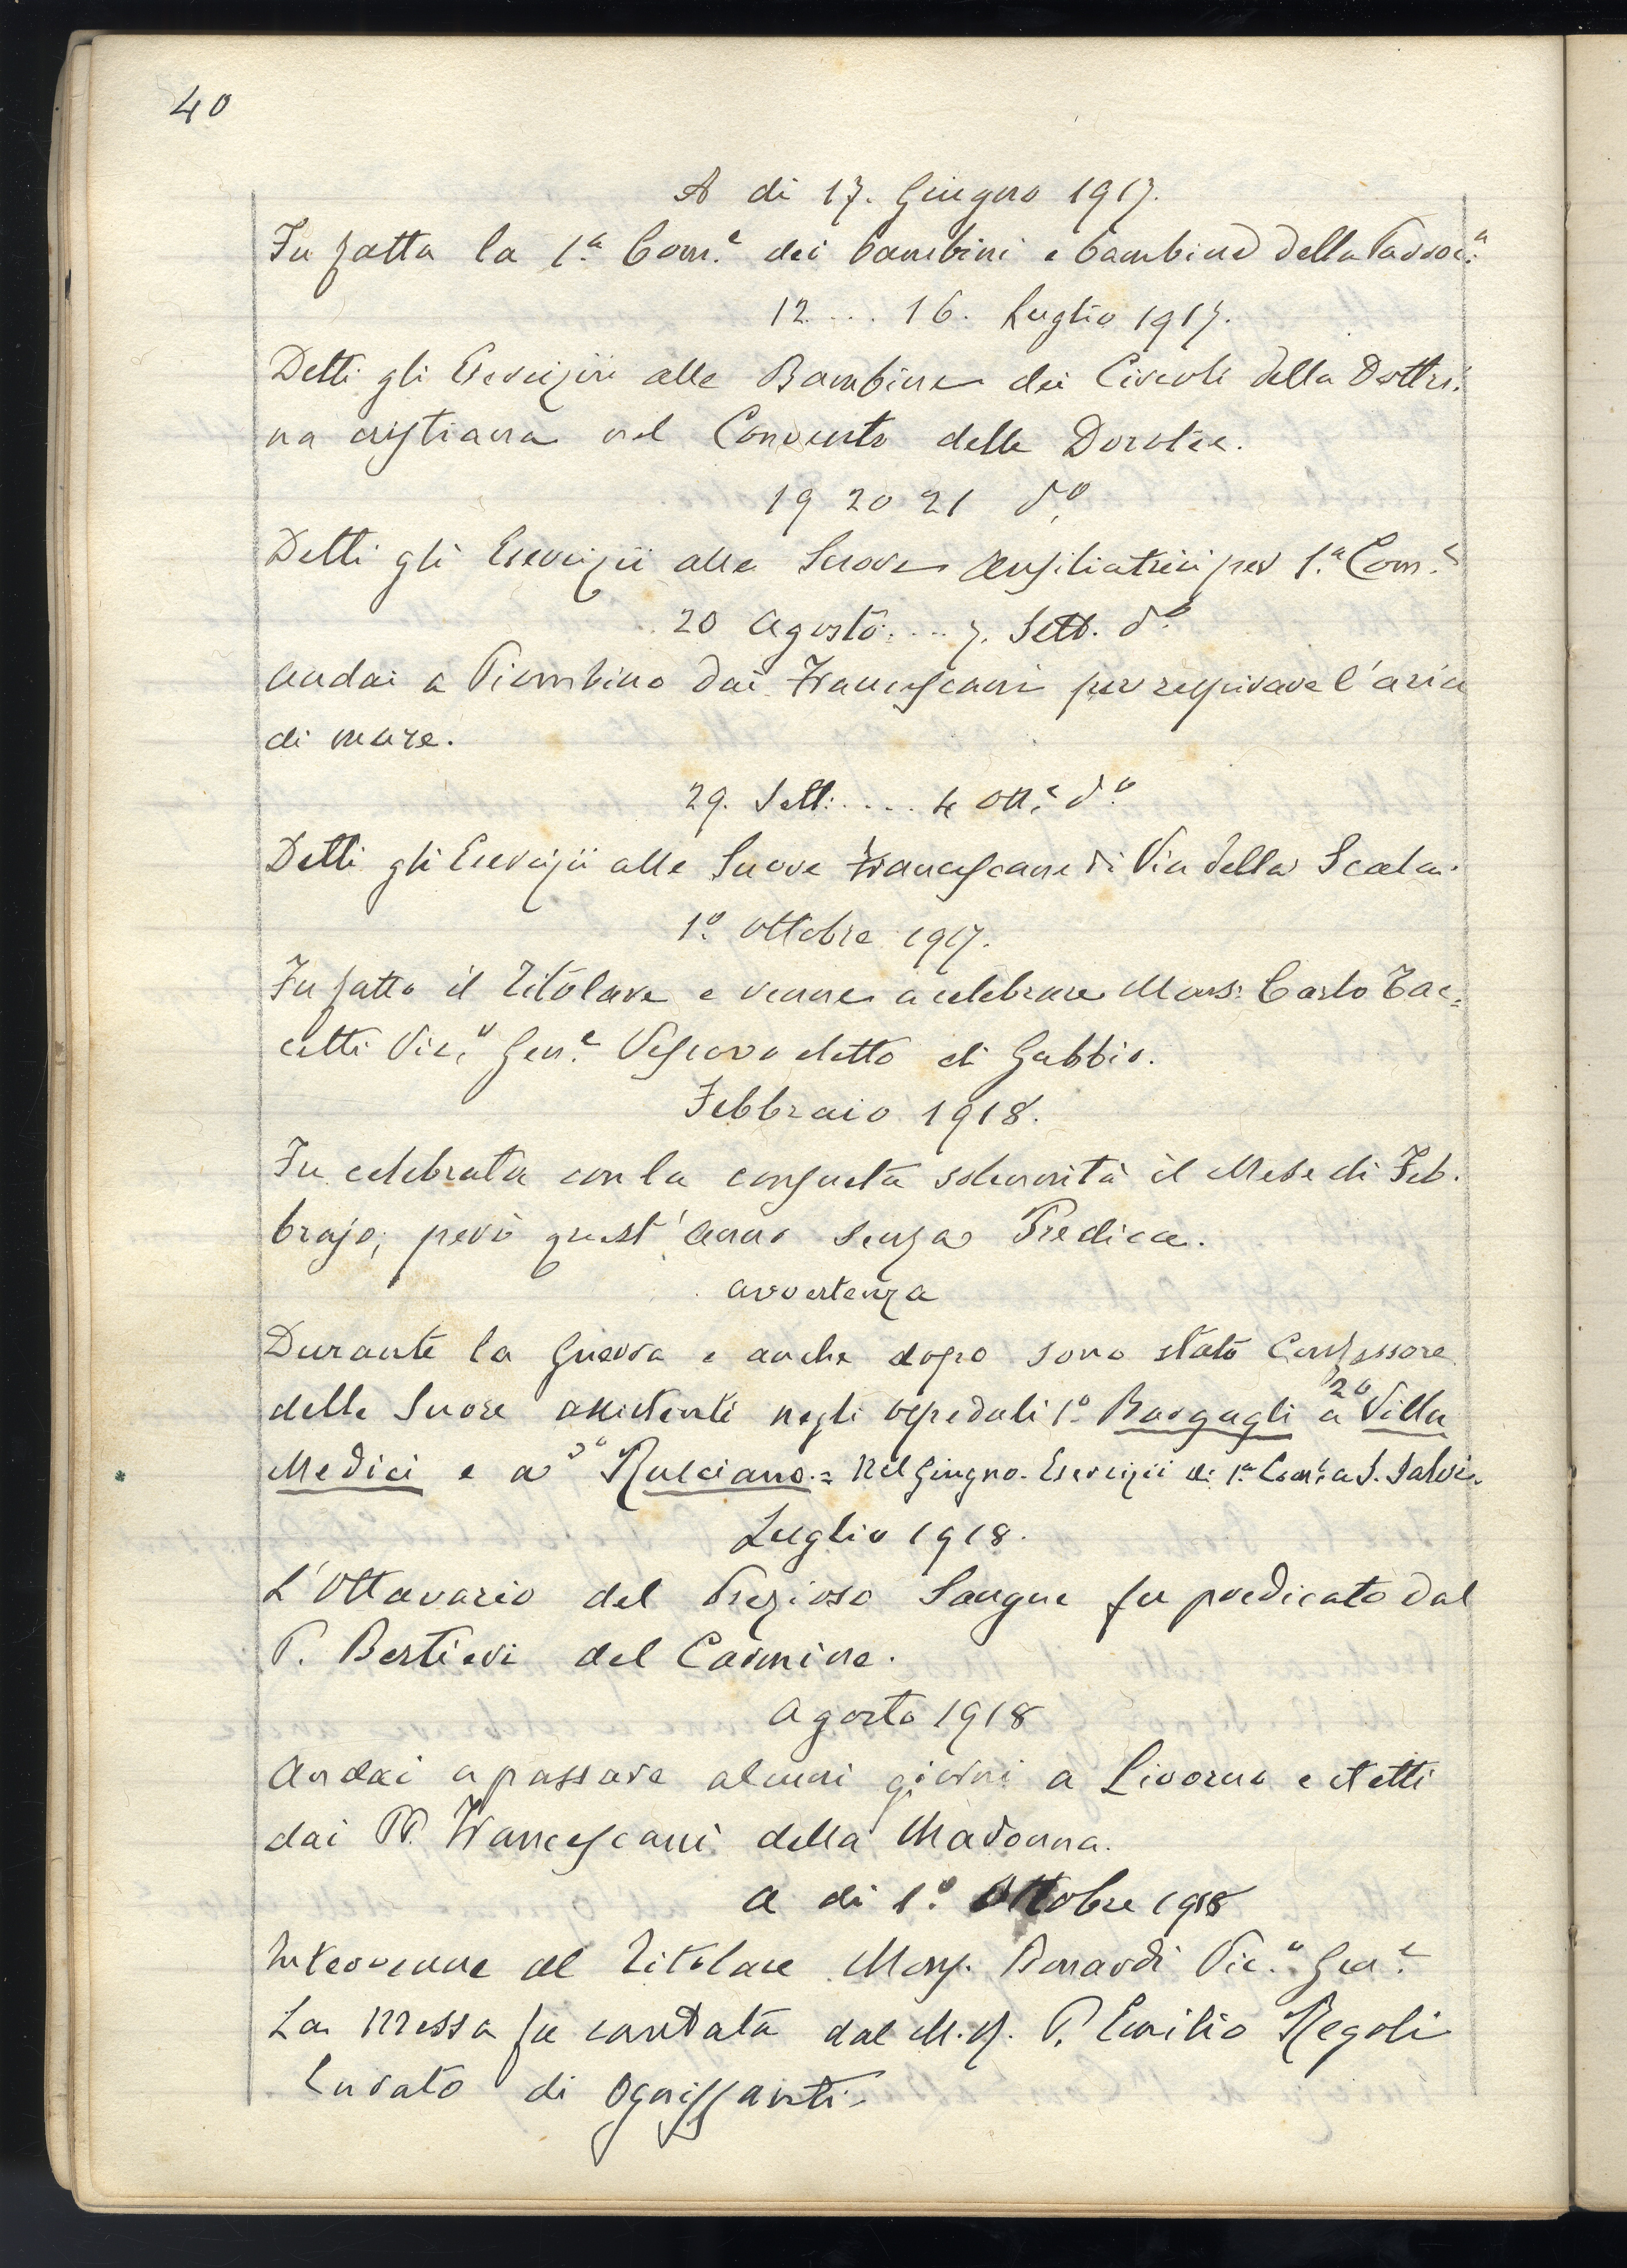 40
A di 17. Giugno 1917.
Fu fatta la 1ª Com.e dei bambini e bambine della Parroc.a
12 ... 16. Luglio 1917.
Detti gli Esercizii alle Bambine dei Circoli della Dottri:
na cristiana nel Convento delle Dorotee.
19 20 21 d.o
Detti gli Esercizii alle Suore Ausiliatrici per 1.a Com.e
20 Agosto .... 7. Sett. d.o
Andai a Piombino dai Francescani per respirare l'aria
di mare.
29. Sett: .... 4 Ott.e d.o
Detti gli Esercizii alle Suore Francescane di Via della Scala.
1º. Ottobre 1917.
Fu fatto il Titolare e venne a celebrare Mons: Carlo Tac=
cetti Vic.o Gen.e Vescovo eletto di Gubbio.
Febbraio 1918.
Fu celebrata con la consueta solennità il Mese di Feb.
brajo; però quest'anno senza Predica.
avvertenza
Durante la Guerra e anche dopo sono stato Confessore
delle Suore assistenti negli ospedali 1º. Bargagli 2º a Villa
Medici e a 3º Rusciano.= Nel Giugno. Esercizii di 1.a Com.e a S. Salvi.
Luglio 1918.
L'Ottavario del Prezioso Sangue fu predicato dal
P. Bertieri del Carmine.
Agosto 1918
Andai a passare alcuni giorni a Livorno e stetti
dai PP. Francescani della Madonna.
A di 1º. Ottobre 1918
Intervenne al Titolare Mons. Bonardi Vic.o Gen.e
La Messa fu cantata dal M.R. P. Emilio Regoli
Curato di Ognissanti.